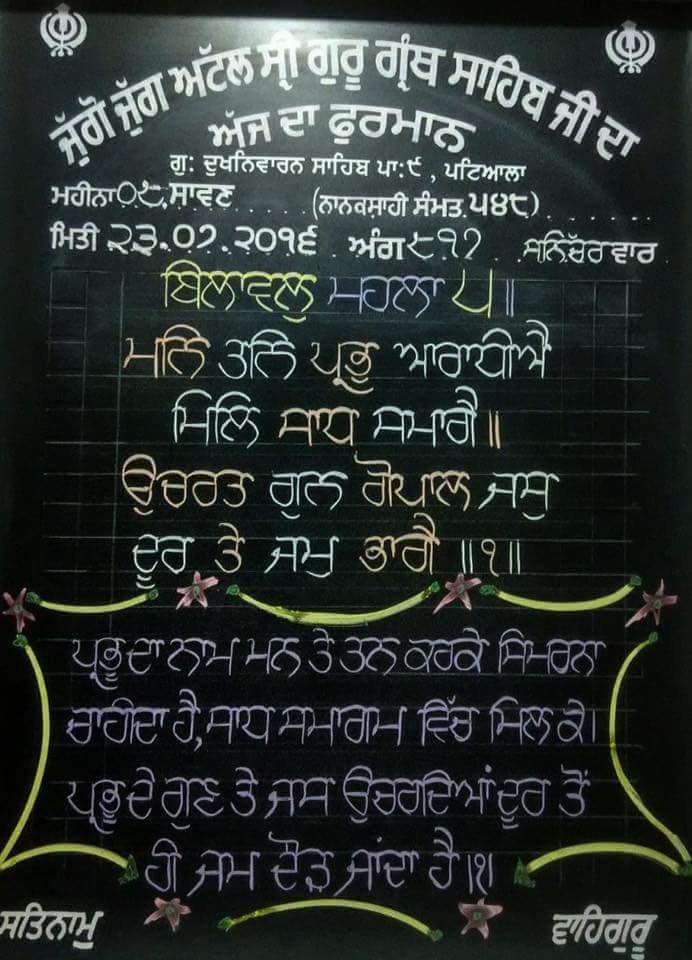 ਜੁੱਗੋ ਜੁੱਗ ਅਟੱਲ ਸ੍ਰੀ ਗੁਰੂ ਗ੍ਰੰਥ ਸਾਹਿਬ ਜੀ ਦਾ
ਅੱਜ ਦਾ ਫੁਰਮਾਨ
ਗੁ: ਦੁਖਨਿਵਾਰਨ ਸਾਹਿਬ ਪਾ:੯, ਪਟਿਆਲਾ
ਮਹੀਨਾ ੦੮ ਸਾਵਣ (ਨਾਨਕਸ਼ਾਹੀ ਸੰਮਤ ੫੪੮)
ਮਿਤੀ ੨੩.੦੭.੨੦੧੬ ਅੰਗ ੮੧੭ ਸਨਿੱਚਰਵਾਰ
ਬਿਲਾਵਲੁ ਮਹਲਾ ੫॥
ਮਨਿ ਤਨਿ ਪ੍ਰਭੁ ਆਰਾਧੀਐ
ਮਿਲਿ ਸਾਧ ਸਮਾਗੈ॥
ਉਚਰਤ ਗੁਨ ਗੋਪਾਲ ਜਸੁ
ਦੂਰ ਤੇ ਜਮੁ ਭਾਗੈ॥੧॥
ਪ੍ਰਭੂ ਦਾ ਨਾਮ ਮਨ ਤੇ ਤਨ ਕਰਕੇ ਸਿਮਰਨਾ
ਚਾਹੀਦਾ ਹੈ, ਸਾਧ ਸਮਾਗਮ ਵਿੱਚ ਮਿਲ ਕੇ।
ਪ੍ਰਭੂ ਦੇ ਗੁਣ ਤੇ ਜਸ ਉਚਰਦਿਆਂ ਦੂਰ ਤੋਂ
ਹੀ ਜਮ ਦੌੜ ਜਾਂਦਾ ਹੈ।੧।
ਸਤਿਨਾਮੁ ਵਾਹਿਗੁਰੂ